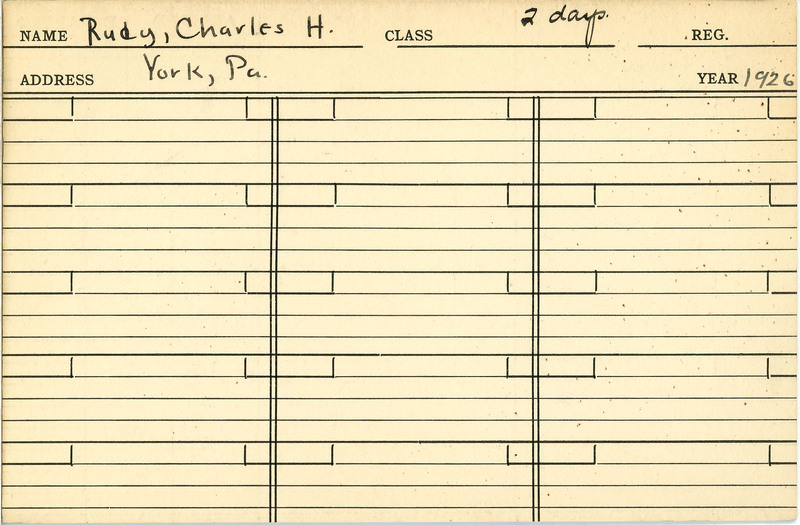 NAME Rudy, Charles H. CLASS 2 days. REG.
ADDRESS York, Pa. YEAR 1926